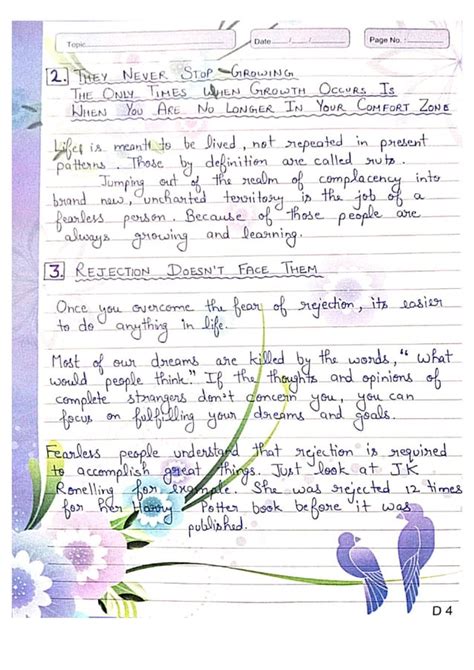 Topic
Date / /
Page No. :
2. THEY NEVER STOP GROWING
THE ONLY TIMES WHEN GROWTH OCCURS IS
WHEN YOU ARE NO LONGER IN YOUR COMFORT ZONE
Life is meant to be lived, not repeated in present
patterns. Those by definition are called ruts.
Jumping out of the realm of complacency into
brand new, uncharted territory is the job of a
fearless person. Because of those people are
always growing and learning.
3. REJECTION DOESN'T FACE THEM
Once you overcome the fear of rejection, its easier
to do anything in life.
Most of our dreams are killed by the words, "what
would people think." If the thoughts and opinions of
complete strangers don't concern you, you can
focus on fulfilling your dreams and goals.
Fearless people understand that rejection is required
to accomplish great things. Just look at J.K
Ronelling for example. She was rejected 12 times
for her Harry Potter book before it was
published.
D 4